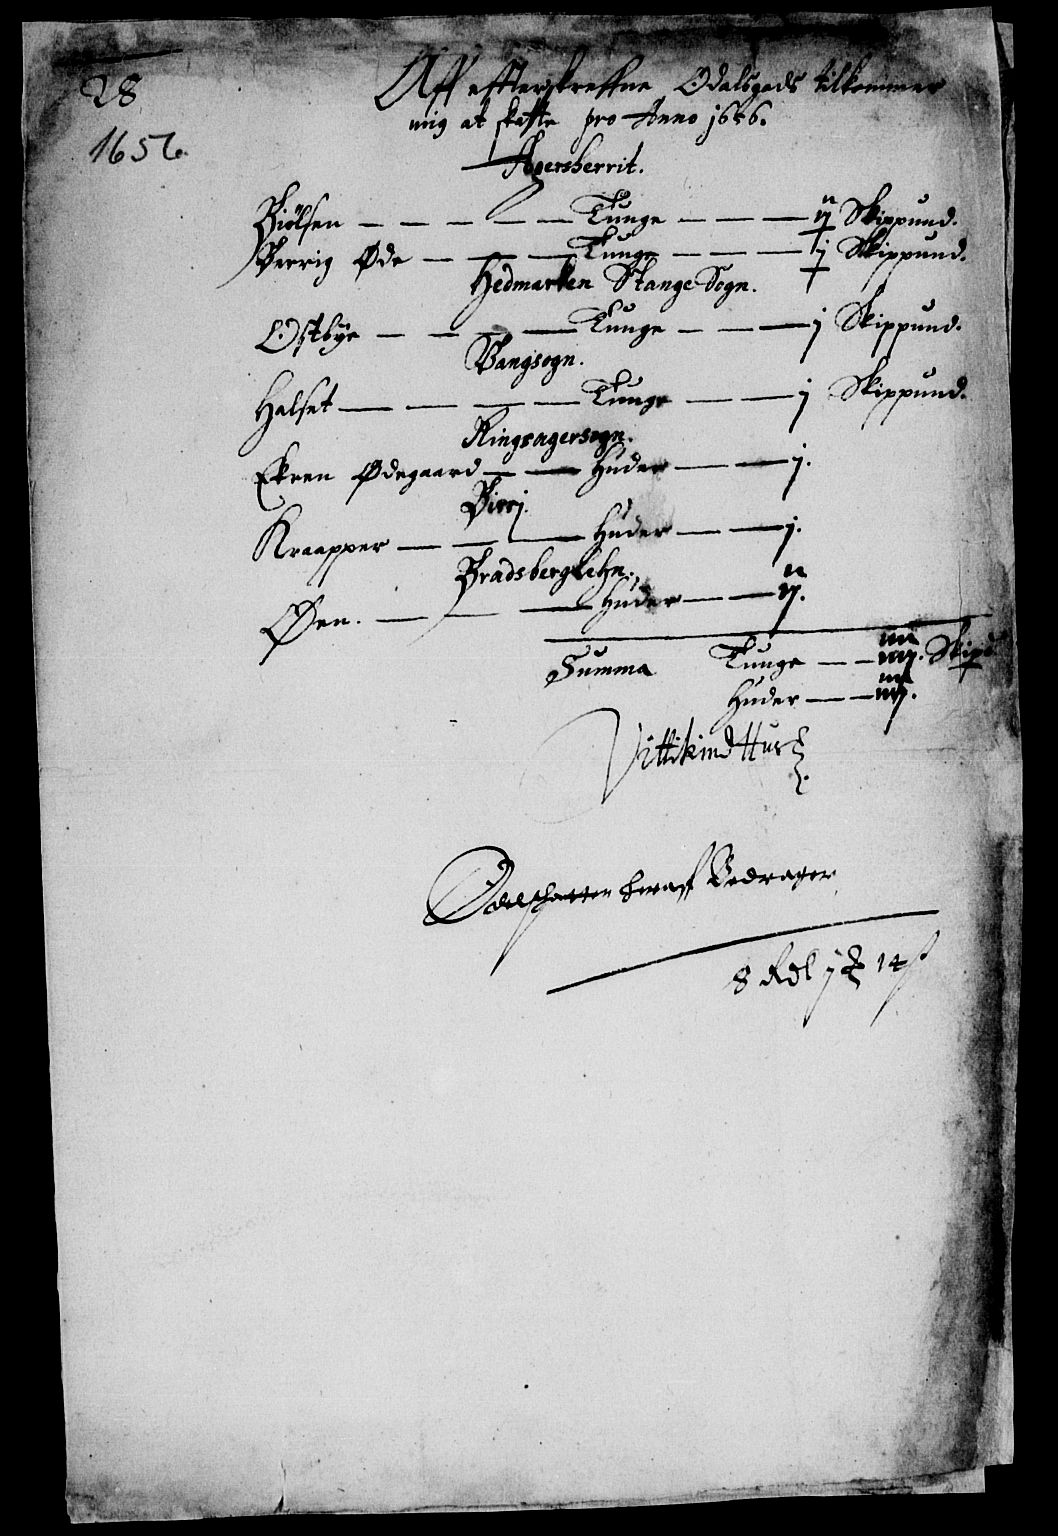 28
1656.
Aff effterskreffne Odalsgods tilkommer
mig at skatte pro Anno 1656.
Agersherrit.
Biölsen — — — — — Tunge — — — ij Skippund.
Berrig Øde — — — Tunge — — — j Skippund.
Hedmarken Stange Sogn.
Ostbÿe — — — — Tunge — — — j Skippund.
Vangsogn.
Halset — — — — — Tunge — — j Skippund.
Ringsagersogn.
Ekren Ødegaard — — Huder — — j.
Birrj.
Kraapper — — — Huder — — j.
Bradsberglehn.
Øen. — — — Huder — — ij.
Summa Tunge — — Skipd
Huder — — iiij.
Vittikind Hus
Odelschatten heraff Bedrager
8 Rdl j 14 s